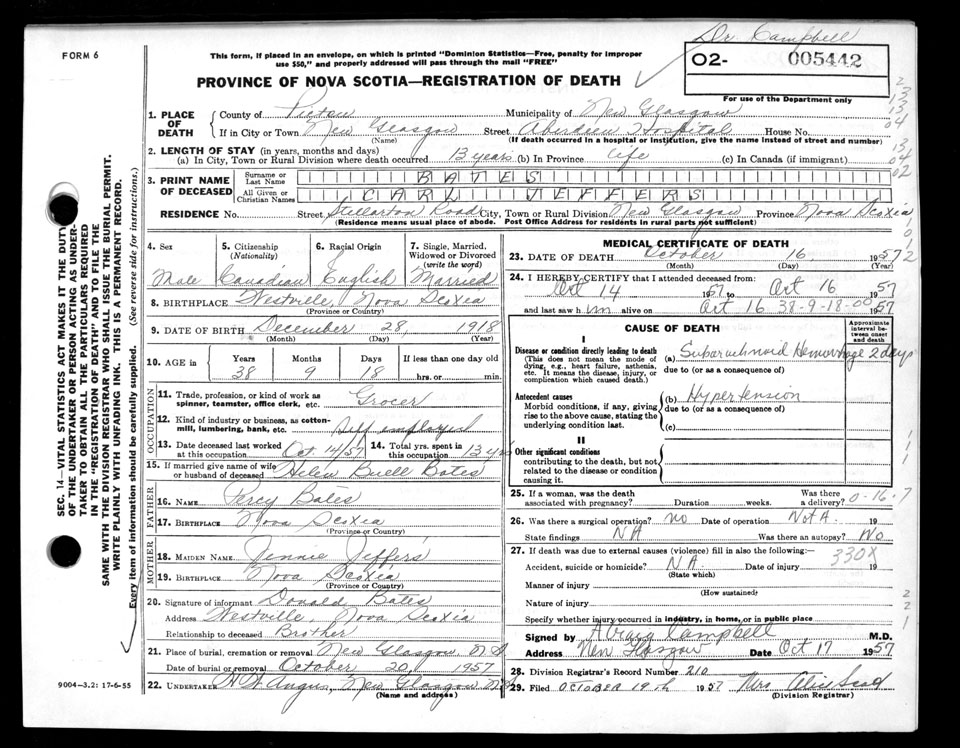 Dr Campbell
FORM 6
This form, if placed in an envelope, on which is printed "Dominion Statistics—Free, penalty for improper
use $50," and properly addressed will pass through the mail "FREE"
O2- 005442
PROVINCE OF NOVA SCOTIA—REGISTRATION OF DEATH
For use of the Department only
1. PLACE OF DEATH
County of Pictou Municipality of New Glasgow
If in City or Town New Glasgow Street Aberdeen Hospital House No.
(Name) (If death occurred in a hospital or institution, give the name instead of street and number)
2. LENGTH OF STAY (in years, months and days)
(a) In City, Town or Rural Division where death occurred 13 years (b) In Province Life (c) In Canada (if immigrant)
3. PRINT NAME OF DECEASED
Surname or Last Name BATES
All Given or Christian Names CARL JEFFERS
RESIDENCE No. Street Stellarton Road City, Town or Rural Division New Glasgow Province Nova Scotia
(Residence means usual place of abode. Post Office Address for residents in rural parts not sufficient)
4. Sex
Male
5. Citizenship (Nationality)
Canadian
6. Racial Origin
English
7. Single, Married, Widowed or Divorced (write the word)
Married
8. BIRTHPLACE Westville, Nova Scotia
(Province or Country)
9. DATE OF BIRTH December 28, 1918
(Month) (Day) (Year)
10. AGE in Years Months Days If less than one day old
38 9 18 hrs. or min.
OCCUPATION
11. Trade, profession, or kind of work as
spinner, teamster, office clerk, etc. Grocer
12. Kind of industry or business, as cotton-
mill, lumbering, bank, etc. Self employed
13. Date deceased last worked at this occupation Oct 14/57
14. Total yrs. spent in this occupation 13 yrs
15. If married give name of wife
or husband of deceased Helen Buell Bates
FATHER
16. NAME Percy Bates
17. BIRTHPLACE Nova Scotia
(Province or Country)
MOTHER
18. MAIDEN NAME Jennie Jeffers
19. BIRTHPLACE Nova Scotia
(Province or Country)
20. Signature of informant Donald Bates
Address Westville, Nova Scotia
Relationship to deceased Brother
21. Place of burial, cremation or removal New Glasgow, N.S
Date of burial or removal October 20, 1957
22. UNDERTAKER H W Angus, New Glasgow N.S
(Name and address)
MEDICAL CERTIFICATE OF DEATH
23. DATE OF DEATH October 16, 1957
(Month) (Day) (Year)
24. I HEREBY CERTIFY that I attended deceased from:
Oct 14 1957 to Oct 16 1957
and last saw him alive on Oct 16 38-9-18-00 1957
CAUSE OF DEATH
Approximate interval between onset and death
I
Disease or condition directly leading to death (a) Subarachnoid Hemorrhage 2 days
(This does not mean the mode of dying, e.g., heart failure, asthenia, etc. It means the disease, injury, or complication which caused death.)
due to (or as a consequence of)
Antecedent causes (b) Hypertension
Morbid conditions, if any, giving rise to the above cause, stating the underlying condition last.
due to (or as a consequence of)
(c)
II
Other significant conditions
contributing to the death, but not related to the disease or condition causing it.
25. If a woman, was the death associated with pregnancy? Duration weeks. Was there a delivery? 0-16-7
26. Was there a surgical operation? no Date of operation Not A. 19
State findings NA Was there an autopsy? No
27. If death was due to external causes (violence) fill in also the following:—
330X
Accident, suicide or homicide? N.A. Date of injury 19
(State which)
Manner of injury
(How sustained)
Nature of injury
Specify whether injury occurred in industry, in home, or in public place
Signed by Campbell M.D.
Address New Glasgow Date Oct 17 1957
28. Division Registrar's Record Number 210
29. Filed OCTOBER 19th 1957 Mrs
(Division Registrar)
9004—3.2: 17-6-55
SEC. 14—VITAL STATISTICS ACT MAKES IT THE DUTY
OF THE UNDERTAKER OR PERSON ACTING AS UNDER-
TAKER TO OBTAIN ALL THE PARTICULARS REQUIRED
IN THE "REGISTRATION OF DEATH" AND TO FILE THE
SAME WITH THE DIVISION REGISTRAR WHO SHALL ISSUE THE BURIAL PERMIT.
WRITE PLAINLY WITH UNFADING INK. THIS IS A PERMANENT RECORD.
Every item of information should be carefully supplied. (See reverse side for instructions.)